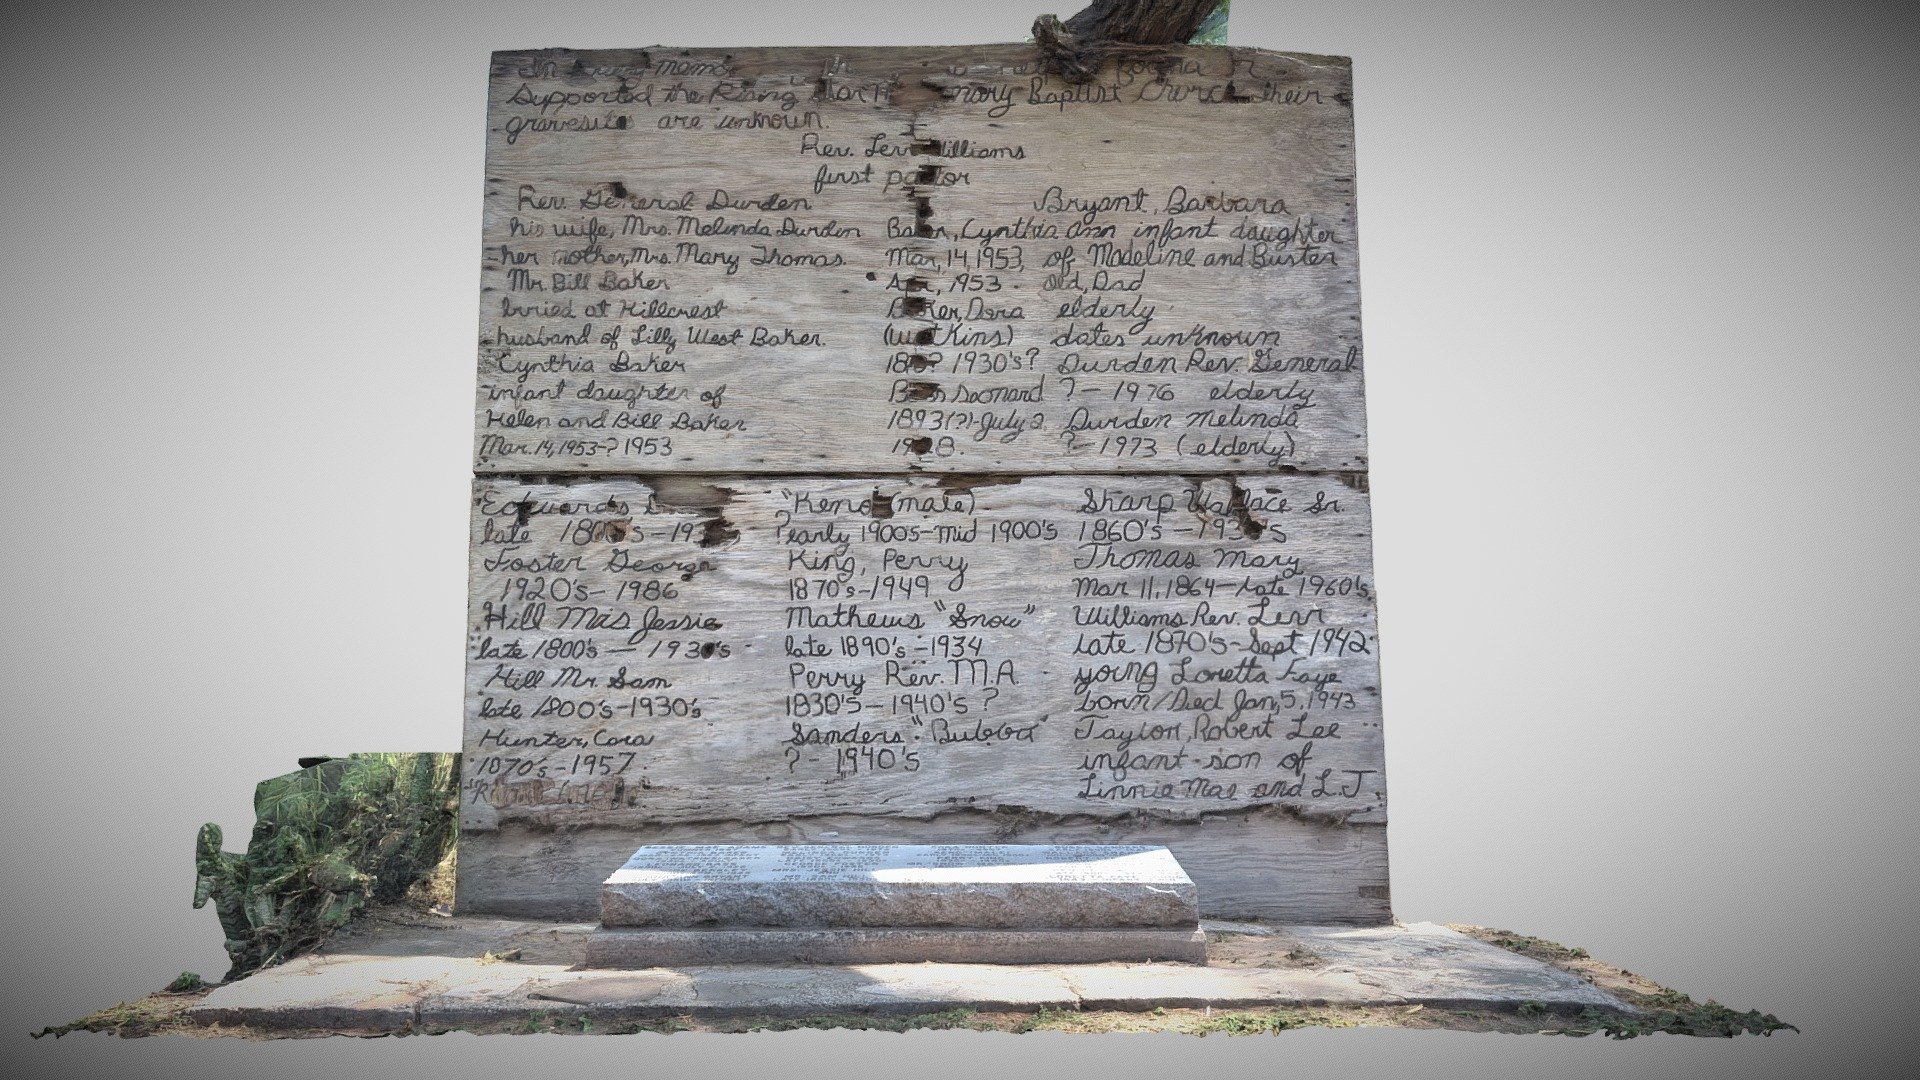 In loving
Supported the Rising Star Baptist Church their
gravesites are unknown.
Rev. Levi Williams
first pastor
Rev. General Durden
his wife, Mrs. Melinda Durden
her mother, Mrs. Mary Thomas.
Mr. Bill Baker
burried at Hillcrest
husband of Lilly West Baker.
Cynthia Baker
infant daughter of
Helen and Bill Baker
Mar. 14, 1953-? 1953
Bryant, Barbara
Baker, Cynthia Ann infant daughter
Mar, 14, 1953, of Madeline and Buster
Apr, 1953 - Old, Dad
Baker, Dora elderly
(Watkins) dates unknown
1930's? Durden Rev. General
? - 1976 elderly
1893(?)-July 2 Durden Melinda
? - 1973 (elderly)
Edwards
late
Foster George
1920's - 1986
Hill Mrs Jessie
late 1800's — 1930's
Hill Mr. Sam
late 1800's - 1930's
Hunter, Cora
1870's - 1957
"Keno (male)
? early 1900s - mid 1900's
King, Perry
1870's - 1949
Mathews "Snow"
late 1890's - 1934
Perry Rev. M.A.
1830's - 1940's ?
Sanders "Bubba"
? - 1940's
Sharp Wallace Sr.
1860's - 193 's
Thomas Mary
Mar 11, 1864 - late 1960's
Williams Rev. Levi
late 1870's - Sept 1942
young Loretta Faye
born/Died Jan, 5, 1943
Taylor, Robert Lee
infant son of
Linnie Mae and L.J.